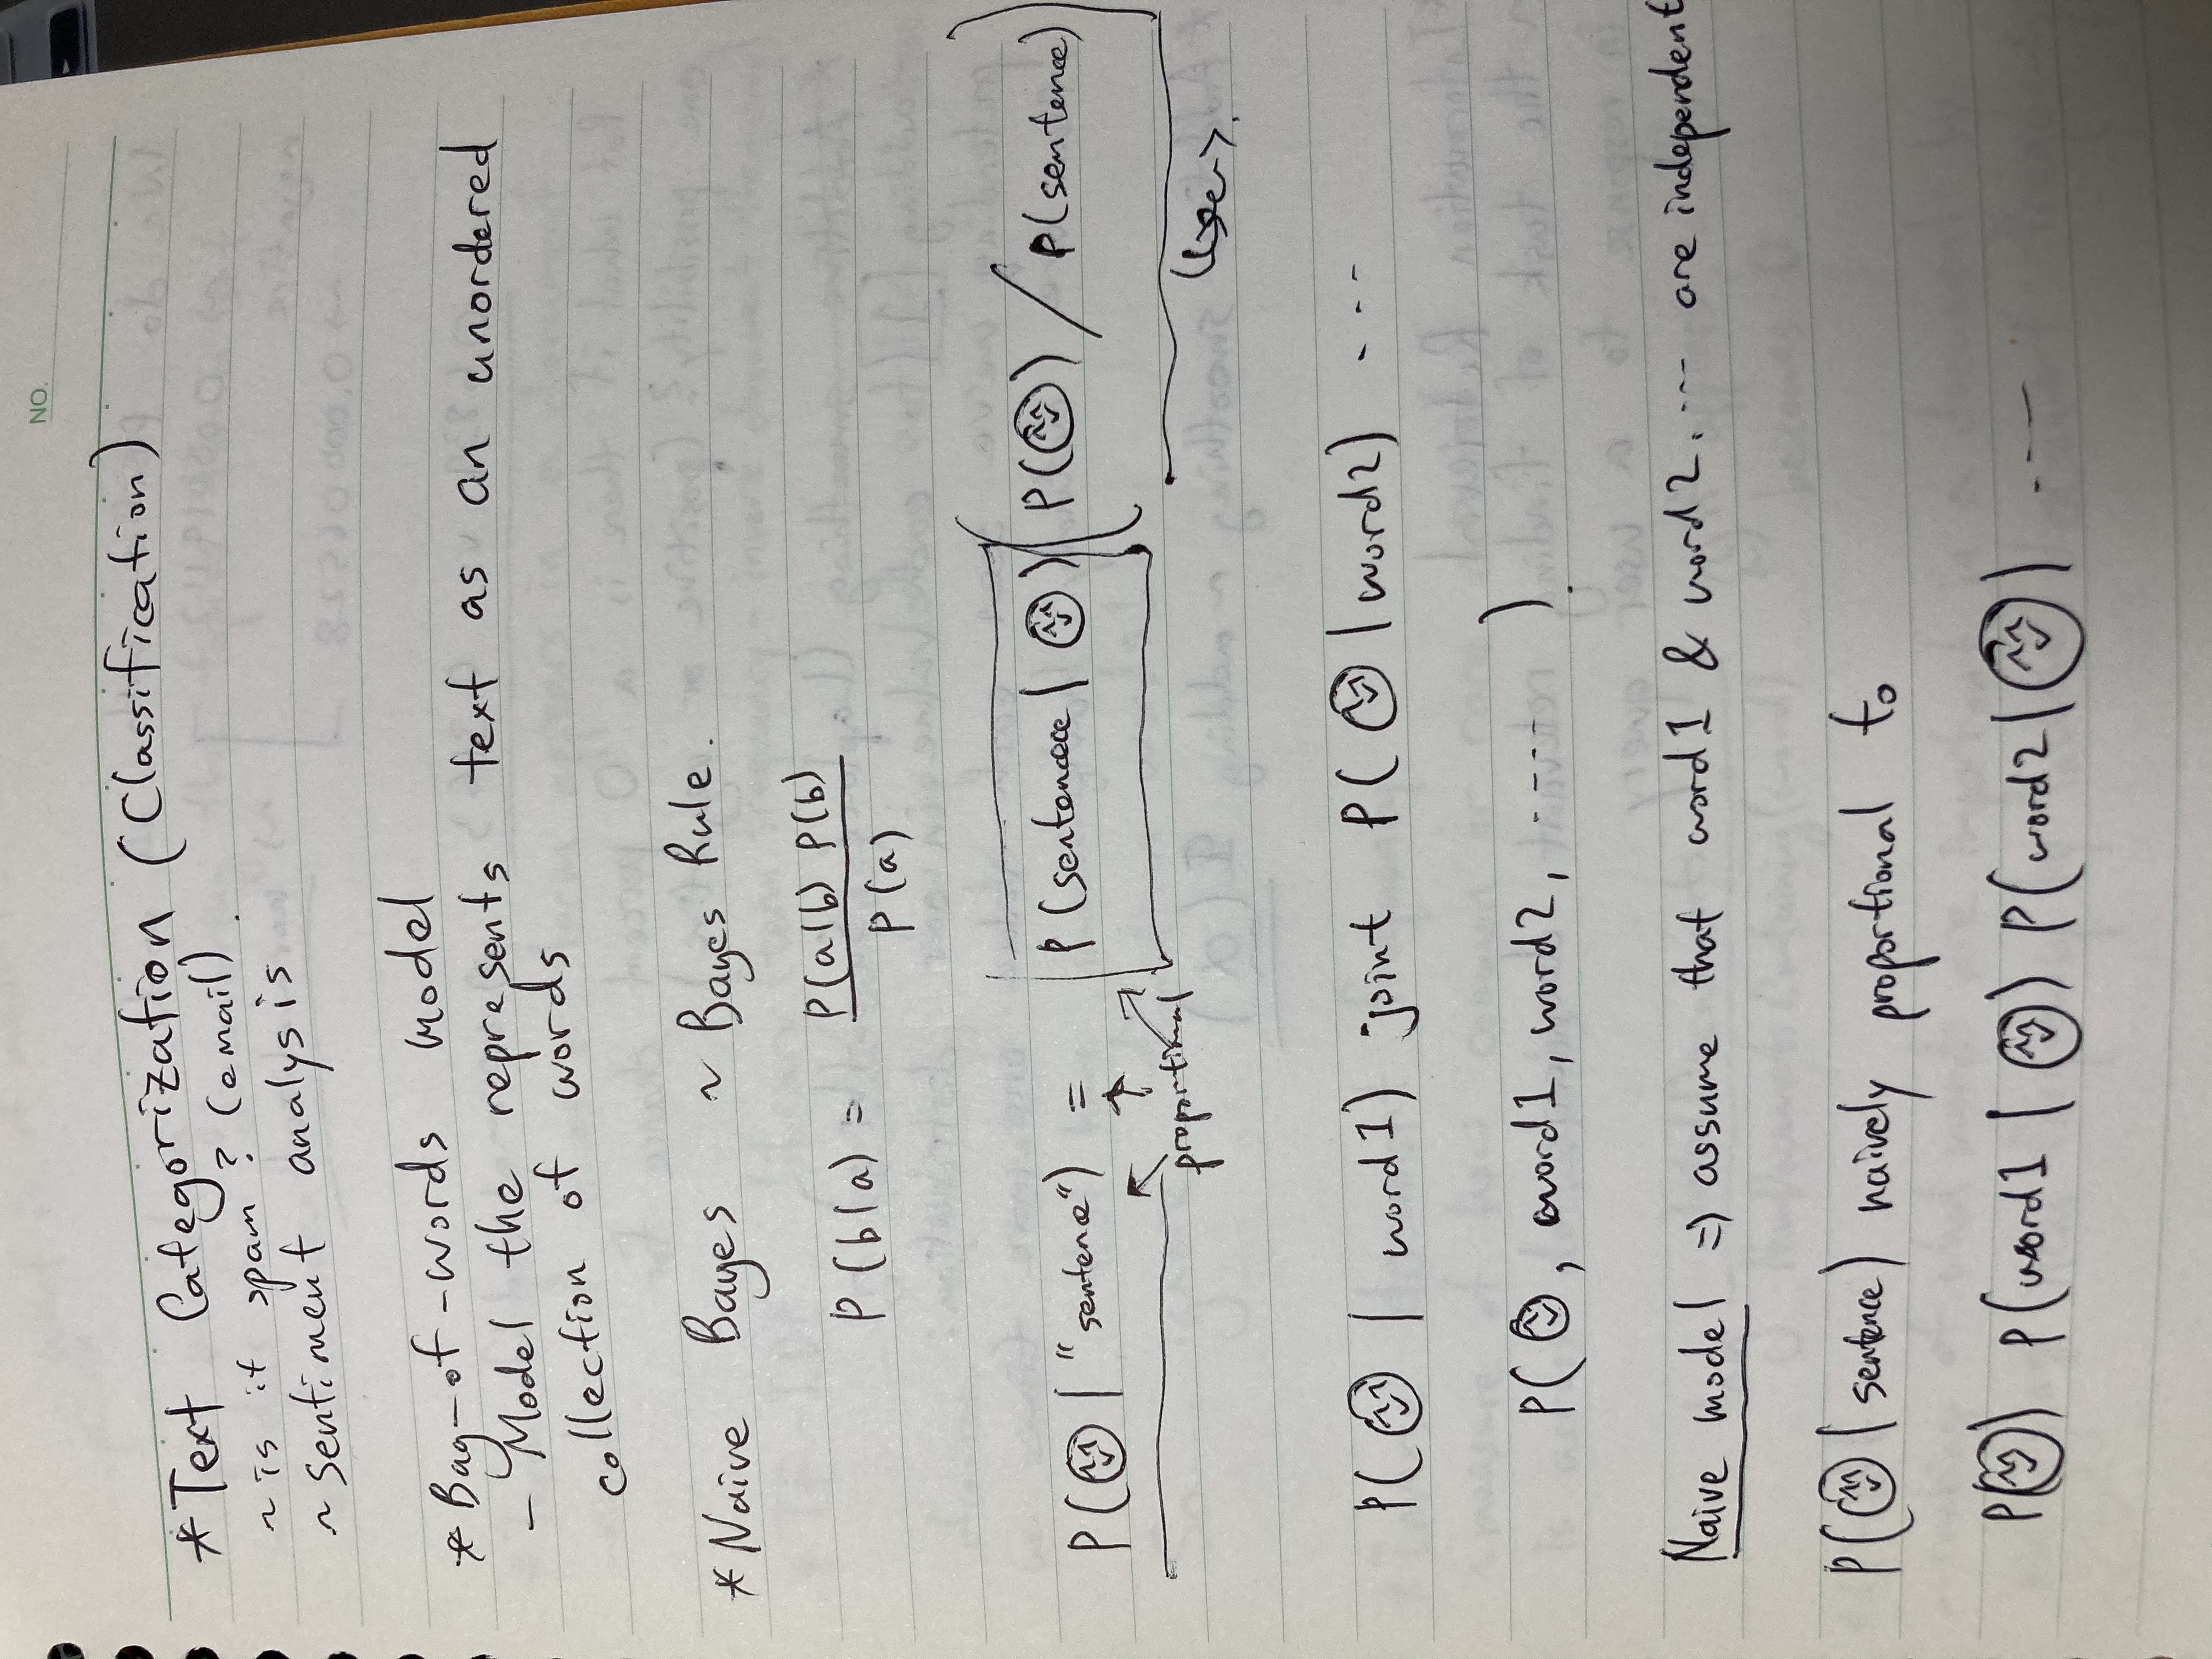 NO.
* Text Categorization (Classification)
~ is it spam? (email).
~ Sentiment analysis
* Bag-of-words model
- Model the represents text as an unordered
collection of words
* Naive Bayes ~ Bayes Rule.
P(b|a) = P(a|b) P(b)
P(a)
P(😊 | "sentence") = P(sentencece | 😊) (P(😊) / P(sentence))
proportional
P(😊 | word1) joint P(😊 | word2) ---
P(😊, word1, word2, ----- ).
Naive model => assume that word1 & word2. --- are independent
P(😊 | sentence) naively proportional to
P(😊) P(word1 | 😊) P(word2 | 😊) ----